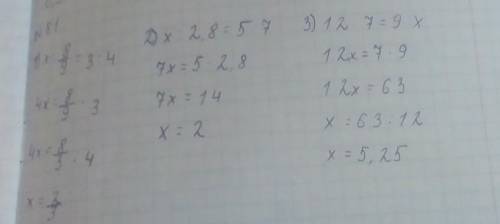 № 81
1) x : 8/9 = 3 : 4
4x = 8/9 · 3
4x = 8/3 : 4
x = 2/3
2) x 2,8 = 5 7
7x = 5 2,8
7x = 14
x = 2
3) 12 7 = 9 x
12x = 7 · 9
12x = 63
x = 63 : 12
x = 5,25